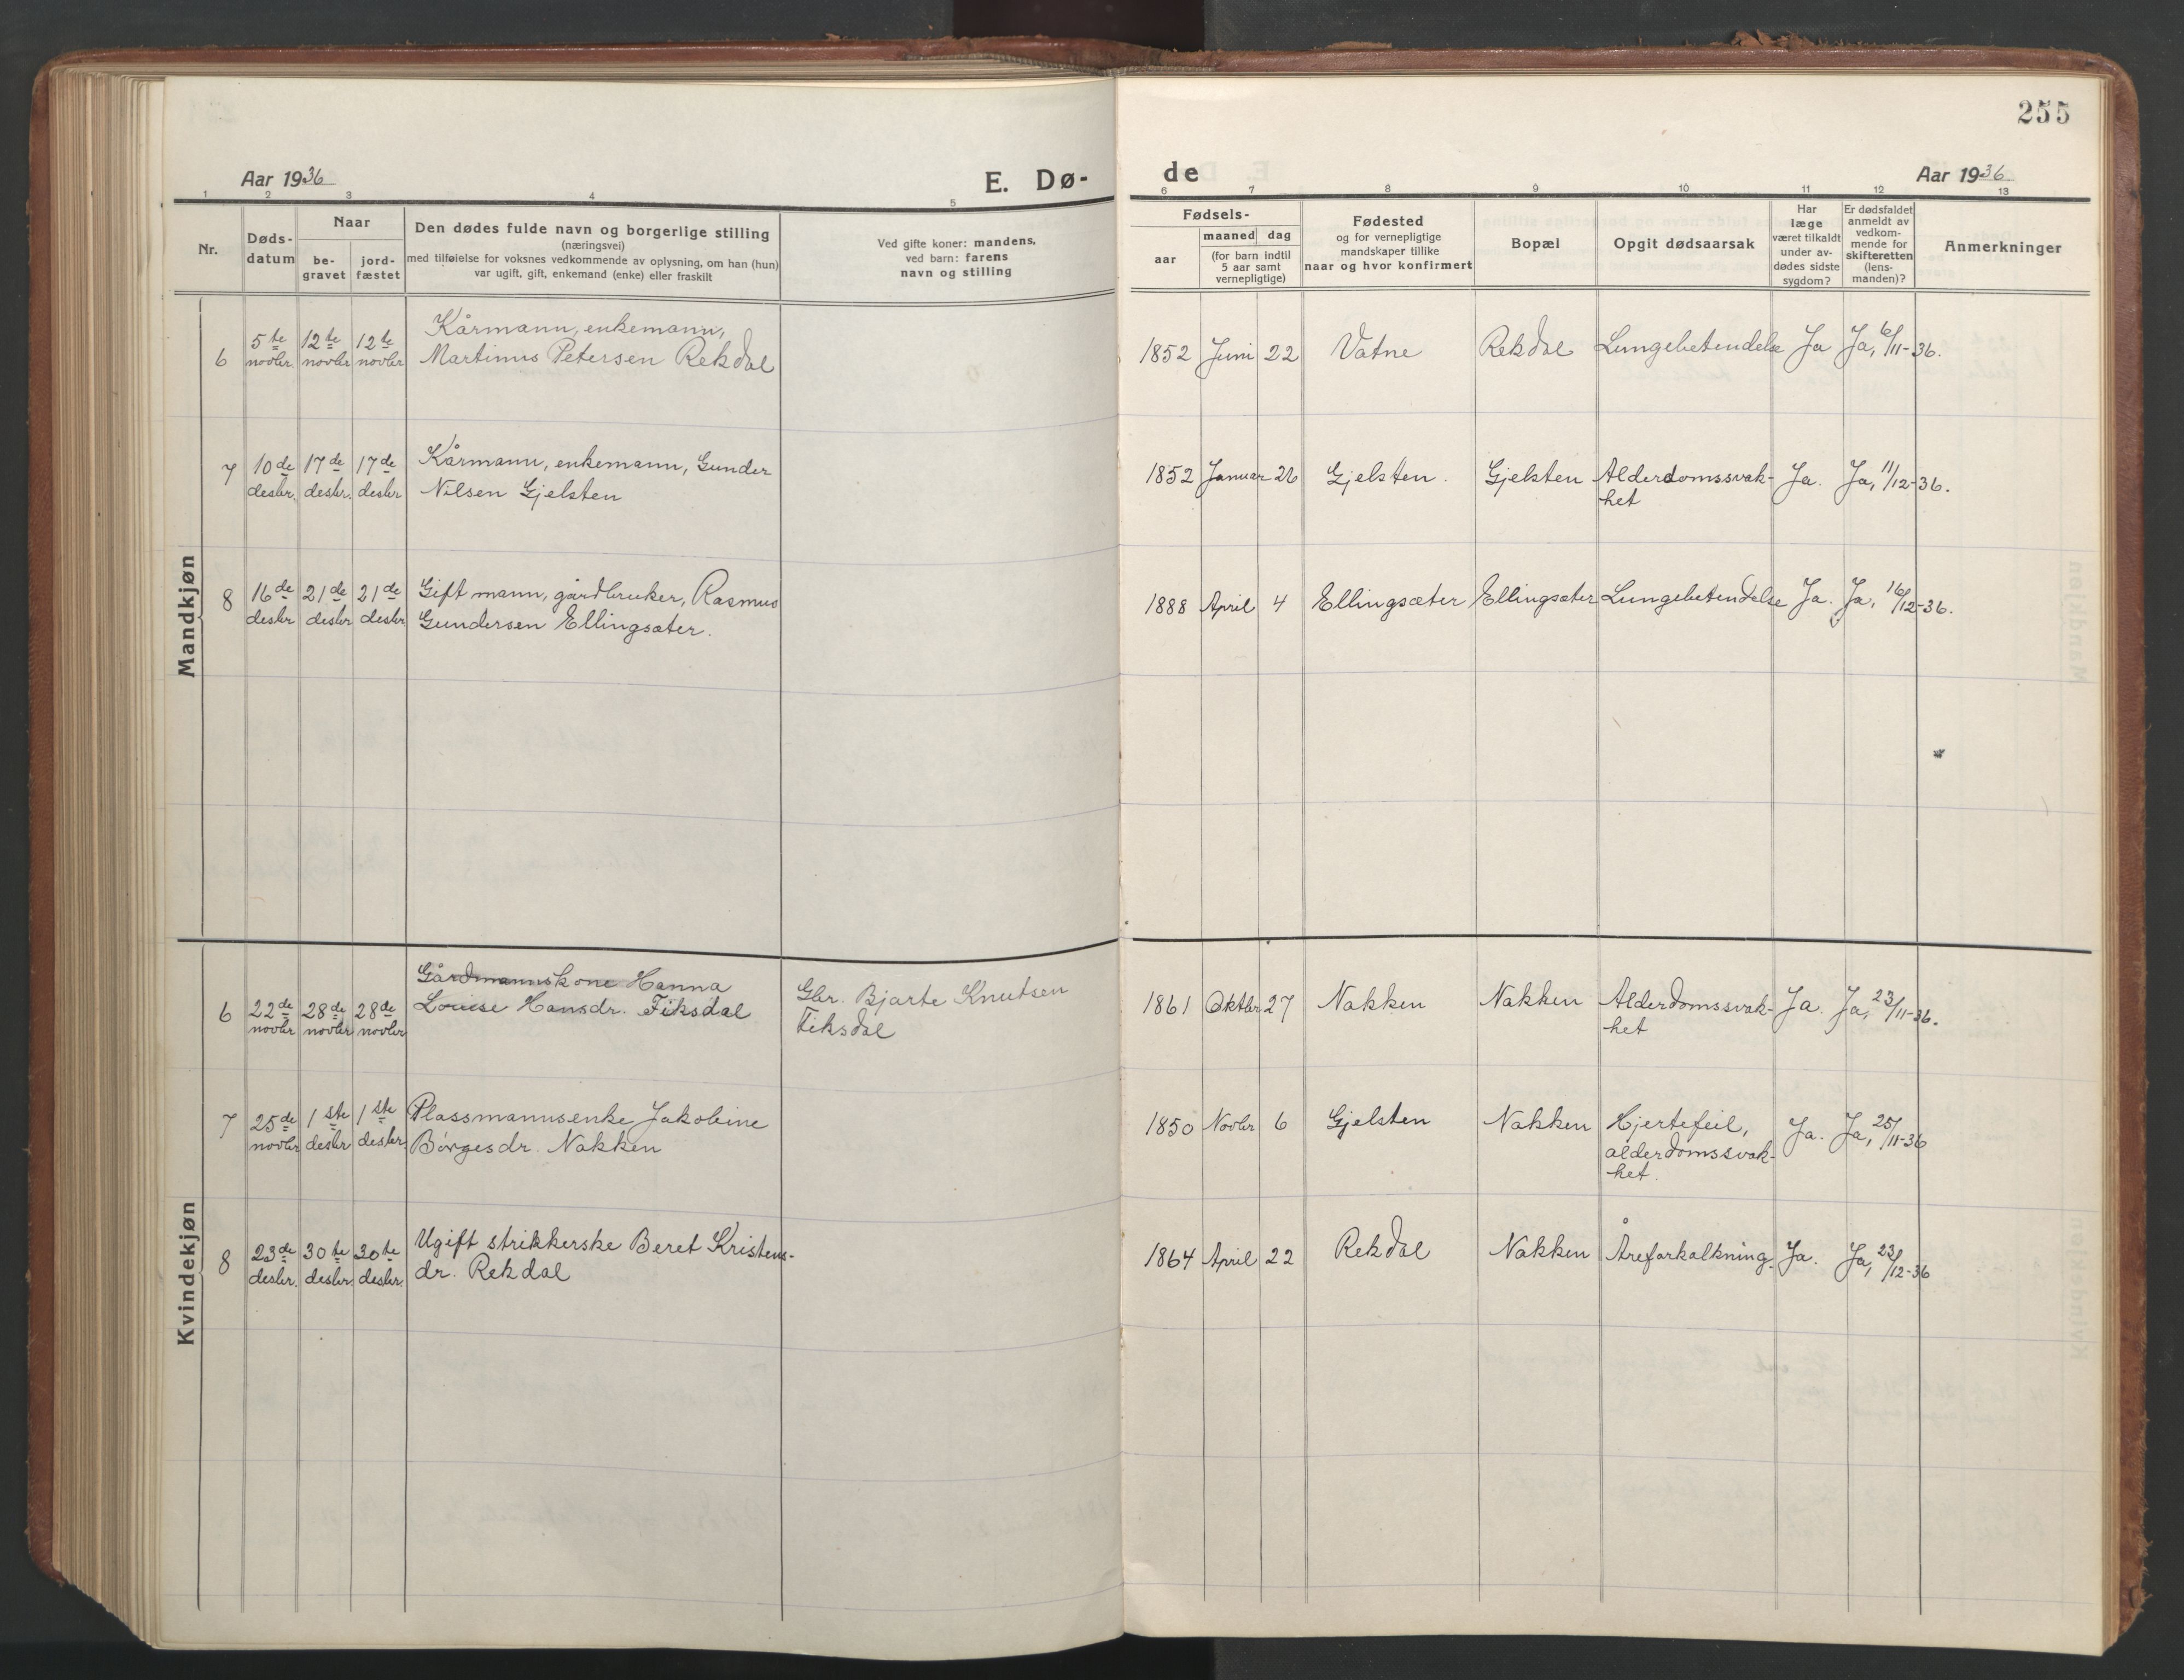 255
Aar 1936
E. Dø-
de
Aar 1936
1 2 3 4 5 6 7 8 9 10 11 12 13
Nr.
Døds-
datum
Naar
be-
gravet
jord-
fæstet
Den dødes fulde navn og borgerlige stilling
(næringsvei)
med tilføielse for voksnes vedkommende av oplysning, om han (hun)
var ugift, gift, enkemand (enke) eller fraskilt
Ved gifte koner: mandens,
ved barn: farens
navn og stilling
Fødsels-
aar
maaned dag
(for barn indtil
5 aar samt
vernepligtige)
Fødested
og for vernepligtige
mandskaper tillike
naar og hvor konfirmert
Bopæl
Opgit dødsaarsak
Har
læge
været tilkaldt
under av-
dødes sidste
sygdom?
Er dødsfaldet
anmeldt av
vedkom-
mende for
skifteretten
(lens-
manden)?
Anmerkninger
Mandkjøn
6 5te novbr. 12te novbr 12te novbr
Kårmann, enkemann,
Martinus Petersen Rekdal
1852 Juni 22 Vatne Rekdal Lungebetendelse Ja Ja, 6/11-36.
7 10de desbr. 17de desbr. 17de desbr
Kårmann, enkemann, Gunder
Nilsen Gjelsten
1852 Januar 26 Gjelsten. Gjelsten Alderdomssvak-
het
Ja. Ja, 11/12-36.
8 16de desbr 21de desbr 21de desbr.
Gift mann, gårdbruker, Rasmus
Gundersen Ellingsæter.
1888 April 4 Ellingsæter Ellingsæter Lungebetendelse Ja. Ja, 16/12-36.
Kvindekjøn
6 22de novbr 28de novbr 28de novbr
Gårdmannskone Hanna
Louise Hansdr. Fiksdal
Gbr. Bjarte Knutsen
Fiksdal
1861 Oktbr 27 Nakken Nakken Alderdomssvak-
het
Ja. Ja, 23/11-36.
7 25de novbr 1ste desbr 1ste desbr.
Plassmannsenke Jakobine
Børgesdr. Nakken
1850 Novbr 6 Gjelsten Nakken Hjertefeil,
alderdomssvak-
het.
Ja. Ja, 25/11-36
8 23de desbr. 30te desbr. 30te desbr.
Ugift strikkerske Beret Kristens-
dr. Rekdal
1864 April 22 Rekdal Nakken Åreforkalkning. Ja. Ja, 23/12-36